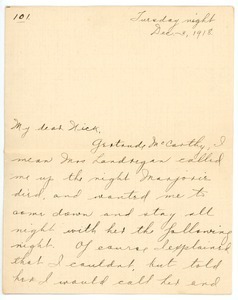 101.
Tuesday night
Dec 3, 1918.
My dear Nick,
Gertrude McCarthy, I
mean Mrs Landregan called
me up the night Marjorie
died, and wanted me to
come down and stay all
night with her the following
night. Of course I explained
that I couldn't, but told
her I would call her and